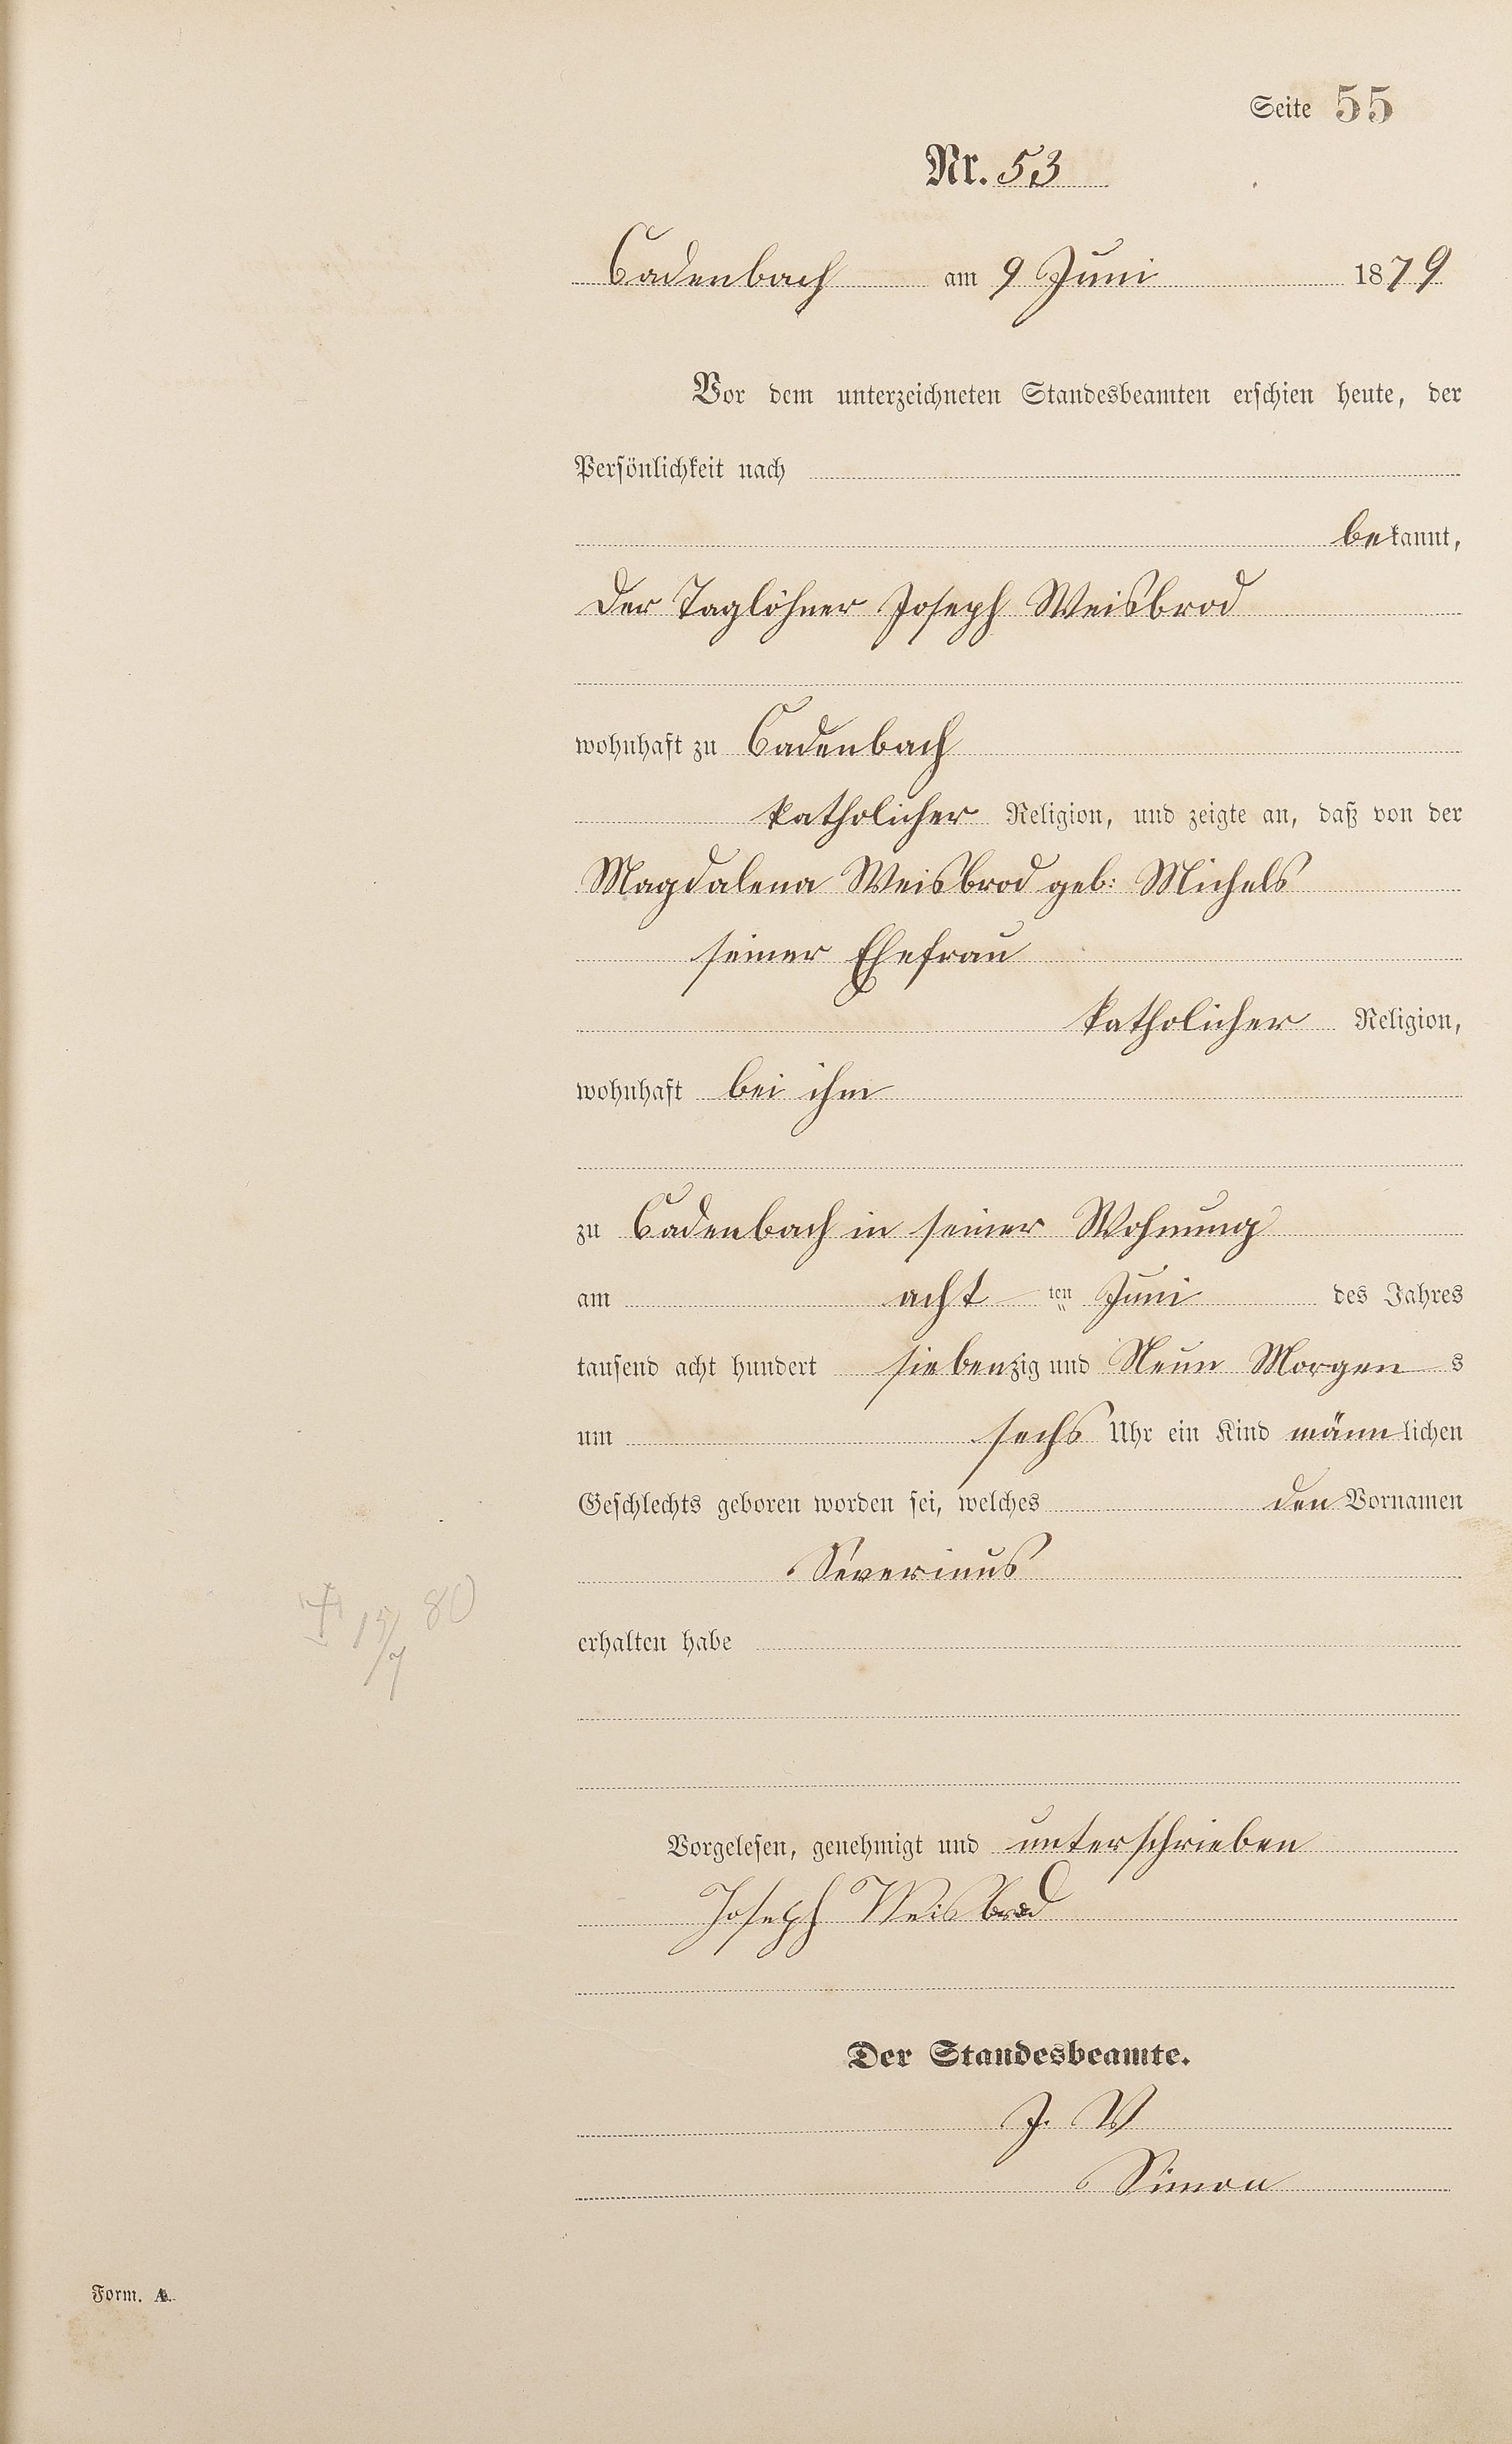 Seite 55
Nr. 53
Cadenbach am 9 Juni 1879
Vor dem unterzeichneten Standesbeamten erschien heute, der
Persönlichkeit nach
bekannt,
der Taglöhner Joseph Weisbrod
wohnhaft zu Cadenbach
katholicher Religion, und zeigte an, daß von der
Magdalena Weisbrod geb: Michels
seiner Ehefrau
katholicher Religion,
wohnhaft bei ihm
zu Cadenbach in seiner Wohnung
am acht ten Juni des Jahres
tausend acht hundert siebenzig und Neun Morgens
um sechs Uhr ein Kind männlichen
Geschlechts geboren worden sei, welches den Vornamen
Severinus
† 15/7 80
erhalten habe
Vorgelesen, genehmigt und unterschrieben
Joseph Weisbrod
Der Standesbeamte.
J. V
Simon
Form. A.